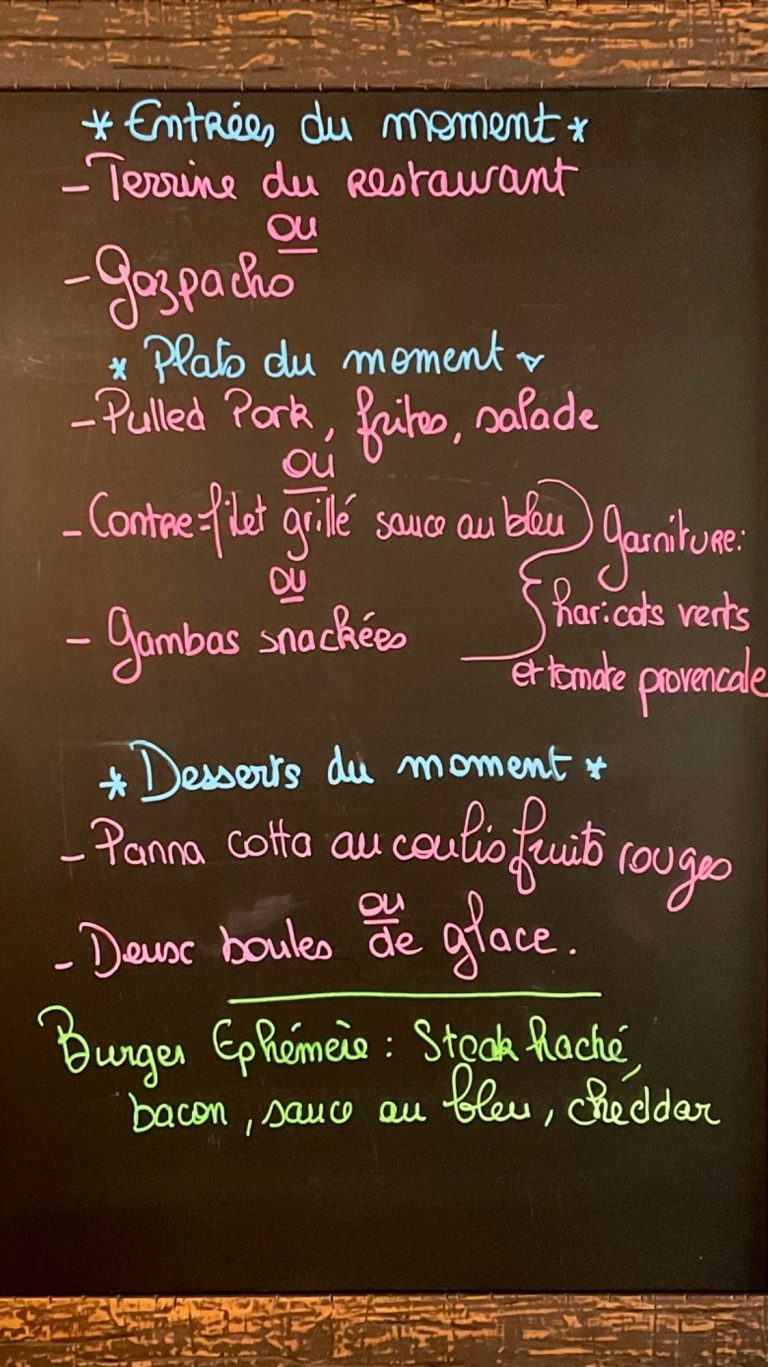 * Entrées du moment *
- Terrine du restaurant
ou
- Gazpacho
* Plats du moment *
- Pulled Pork, frites, salade
ou
- Contre-filet grillé sauce au bleu
ou
- Gambas snackées
Garniture:
haricots verts
et tomate provencale
* Desserts du moment *
- Panna cotta au coulis fruits rouges
ou
- Deux boules de glace.
Burger Ephémère : Steak haché,
bacon, sauce au bleu, chéddar